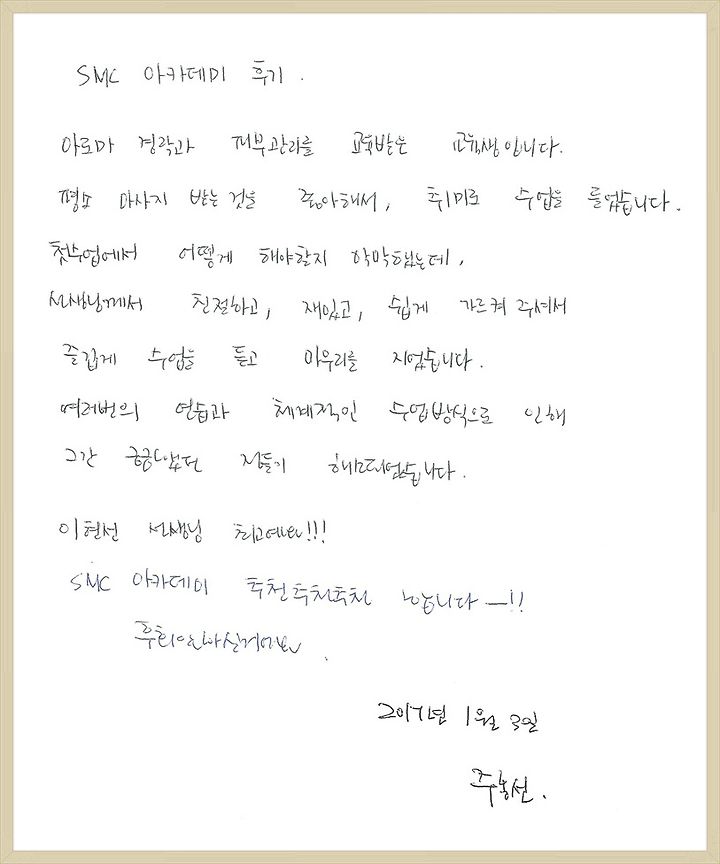 SMC 아카데미 후기.
아로마 경락과 피부관리를 교육받은 교육생입니다.
평소 마사지 받는것을 좋아해서, 취미로 수업을 들었습니다.
첫수업에서 어떻게 해야할지 막막했는데,
선생님께서 친절하고, 재밌고, 쉽게 가르켜 주셔서
즐겁게 수업을 듣고 마무리를 지었습니다.
여러번의 연습과 체계적인 수업방식으로 인해
그간 궁금했던 점들이 해소되었습니다.
이현선 선생님 최고예요!!!
SMC 아카데미 추천추천추천 합니다—!!
후회안하실거예요
2017년 1월 3일